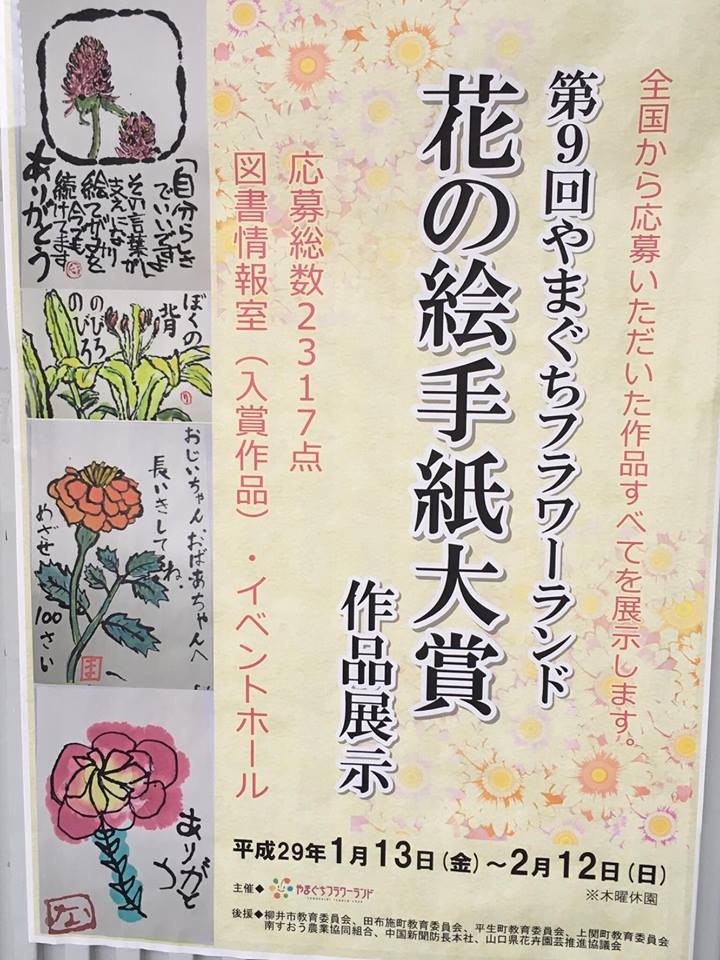 全国から応募いただいた作品すべてを展示します。
第9回やまぐちフラワーランド
花の絵手紙大賞
作品展示
応募総数2317点
図書情報室（入賞作品）・イベントホール
「自分らしさ
でいいですよ」
その言葉が
支えになり
絵てがみを
今でも
続けてます
ありがとう
ぼくの
背
のびろ
のびろ
おじいちゃん、おばあちゃんへ
長いきしてね。
めざせ100さい
圭
ありがとう
ない
平成29年1月13日（金）～2月12日（日）
※木曜休園
主催◆やまぐちフラワーランド
YAMAGUCHI FLOWER LAND
後援◆柳井市教育委員会、田布施町教育委員会、平生町教育委員会、上関町教育委員会
南すおう農業協同組合、中国新聞防長本社、山口県花卉園芸推進協議会